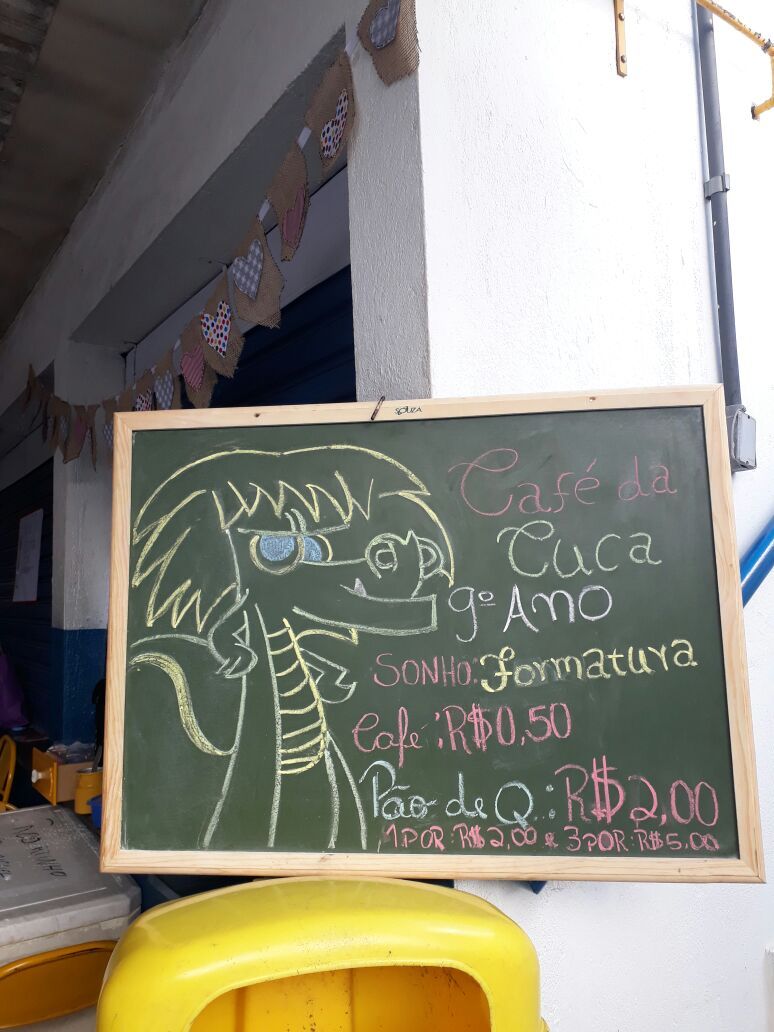 SOUZA
Café da
Cuca
9º Ano
SONHO: Formatura
Café: R$0,50
Pão de Q.: R$2,00
1 POR: R$2,00 e 3 POR: R$5,00